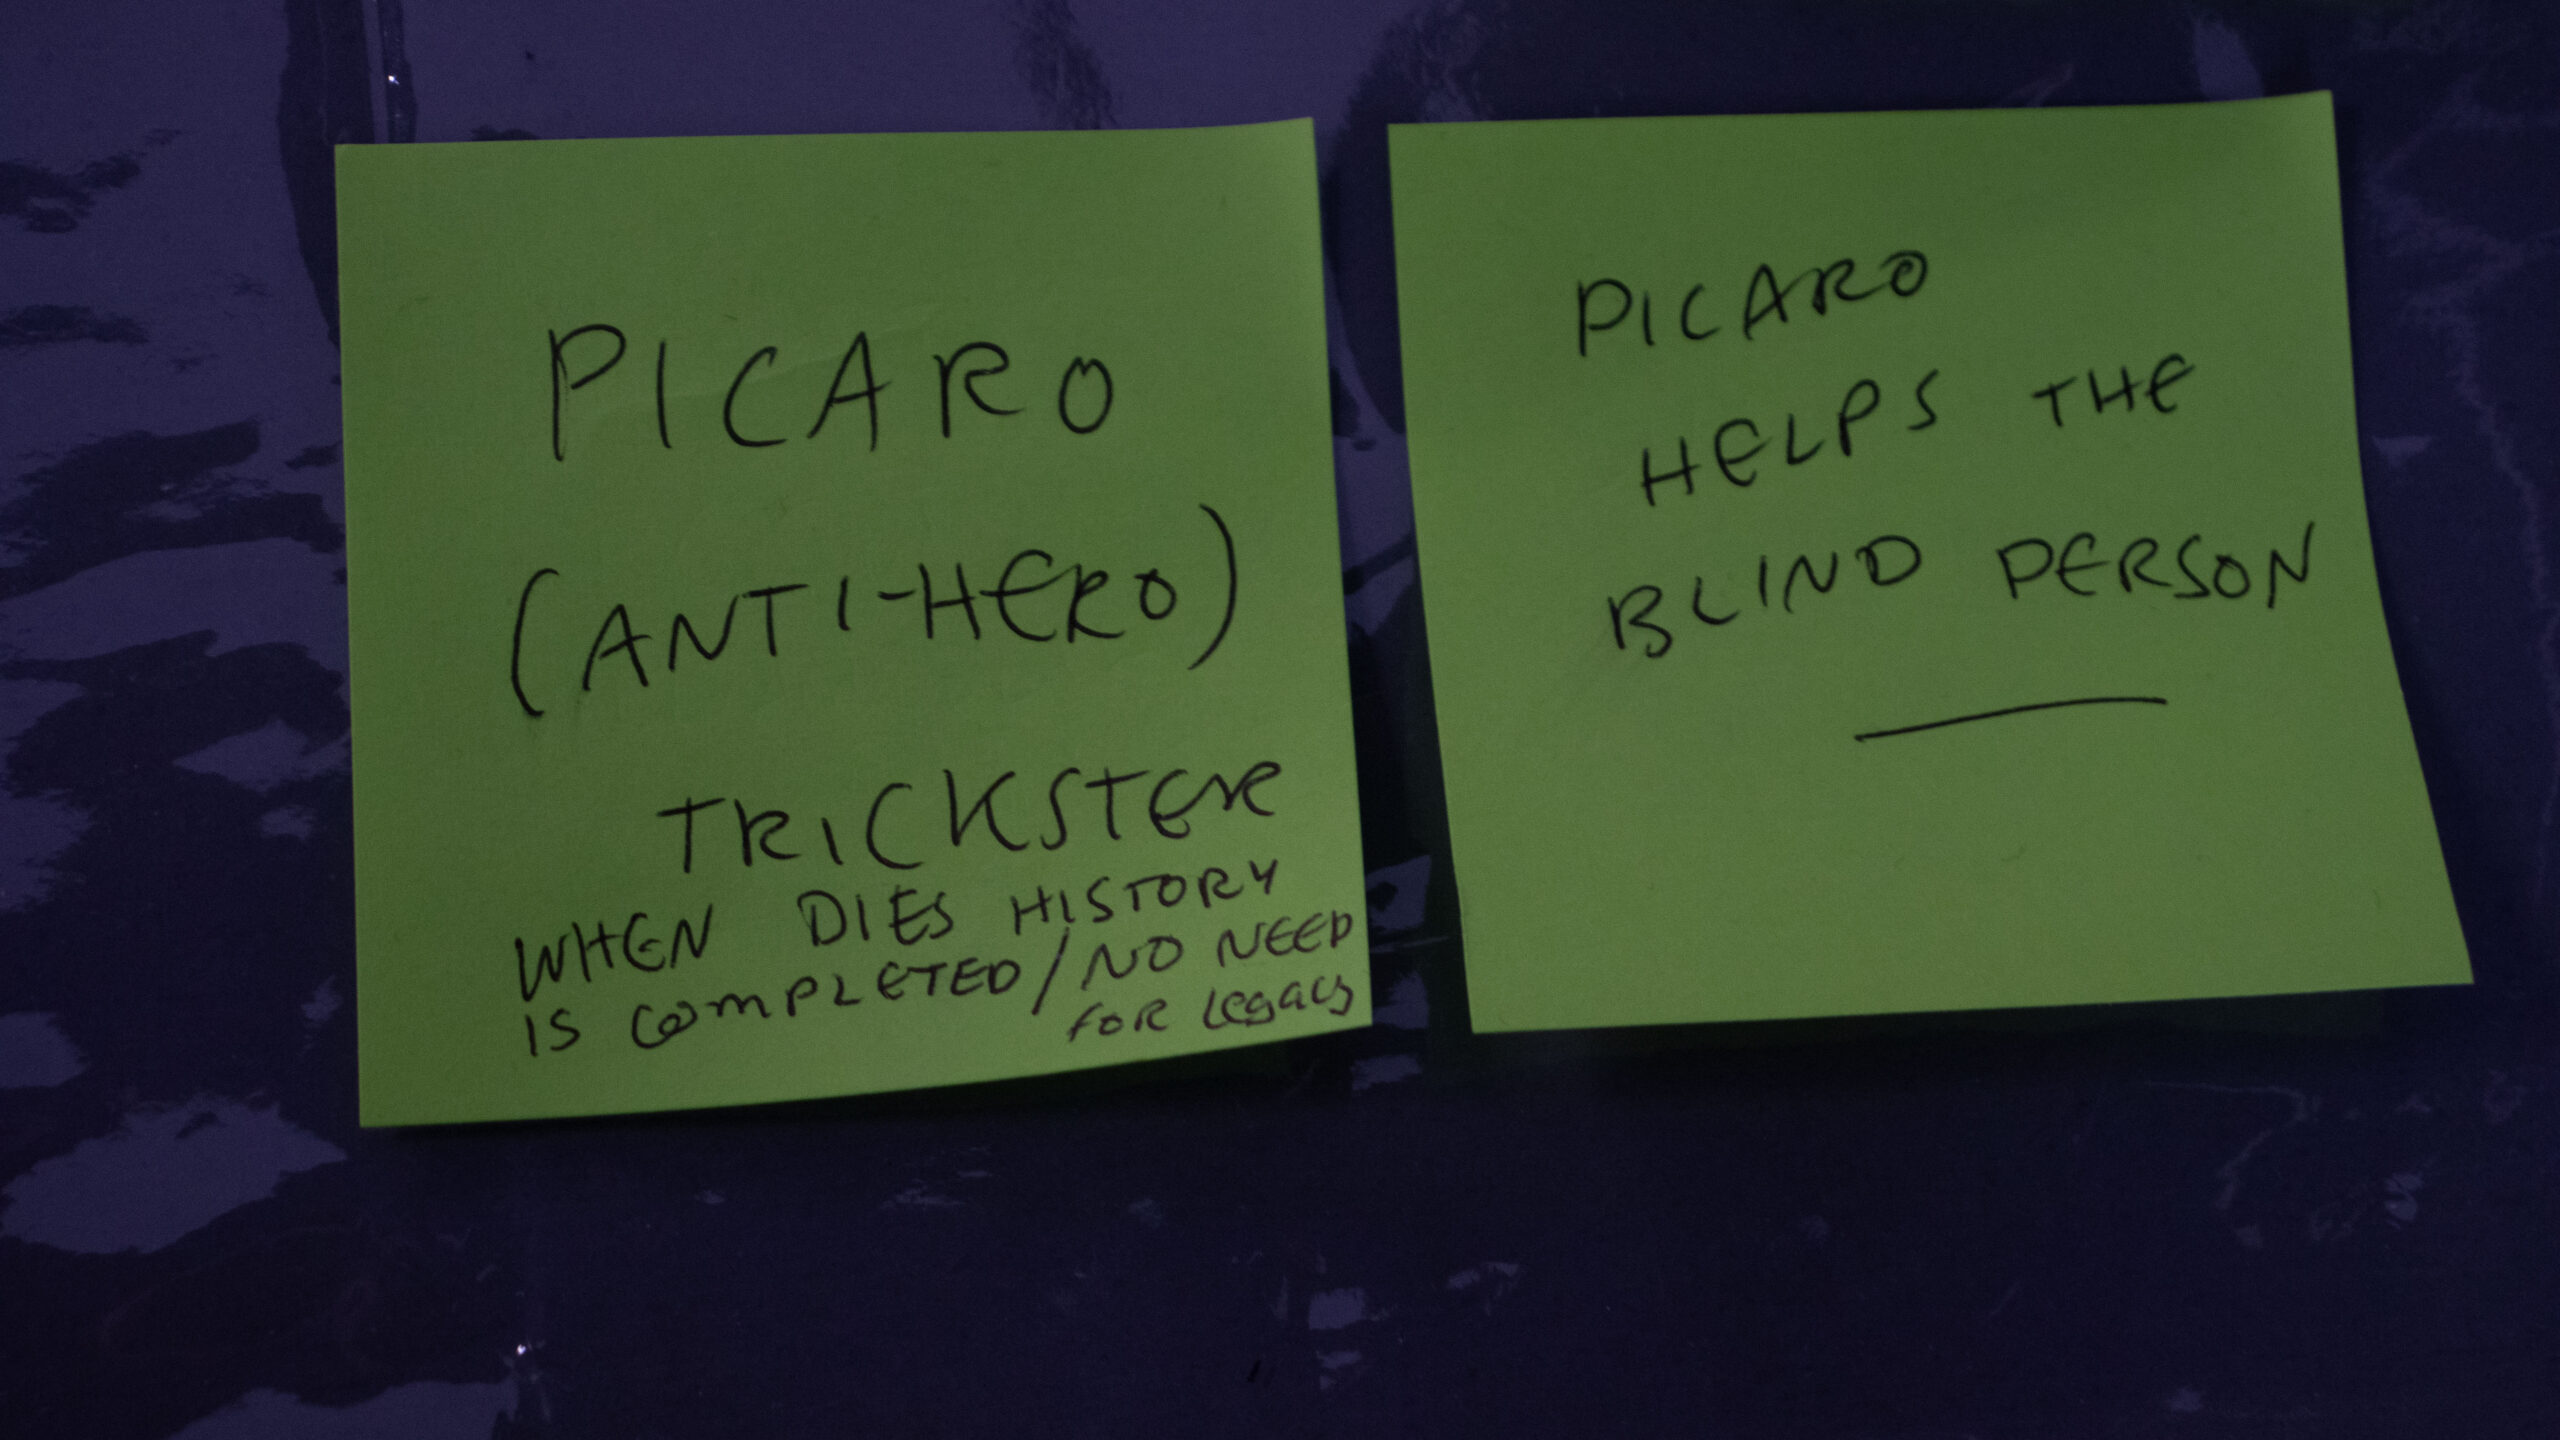 PICARO
(ANTI-HERO)
TRICKSTER
WHEN DIES HISTORY
IS COMPLETED/NO NEED
FOR Legacy
PICARO
HELPS THE
BLIND PERSON